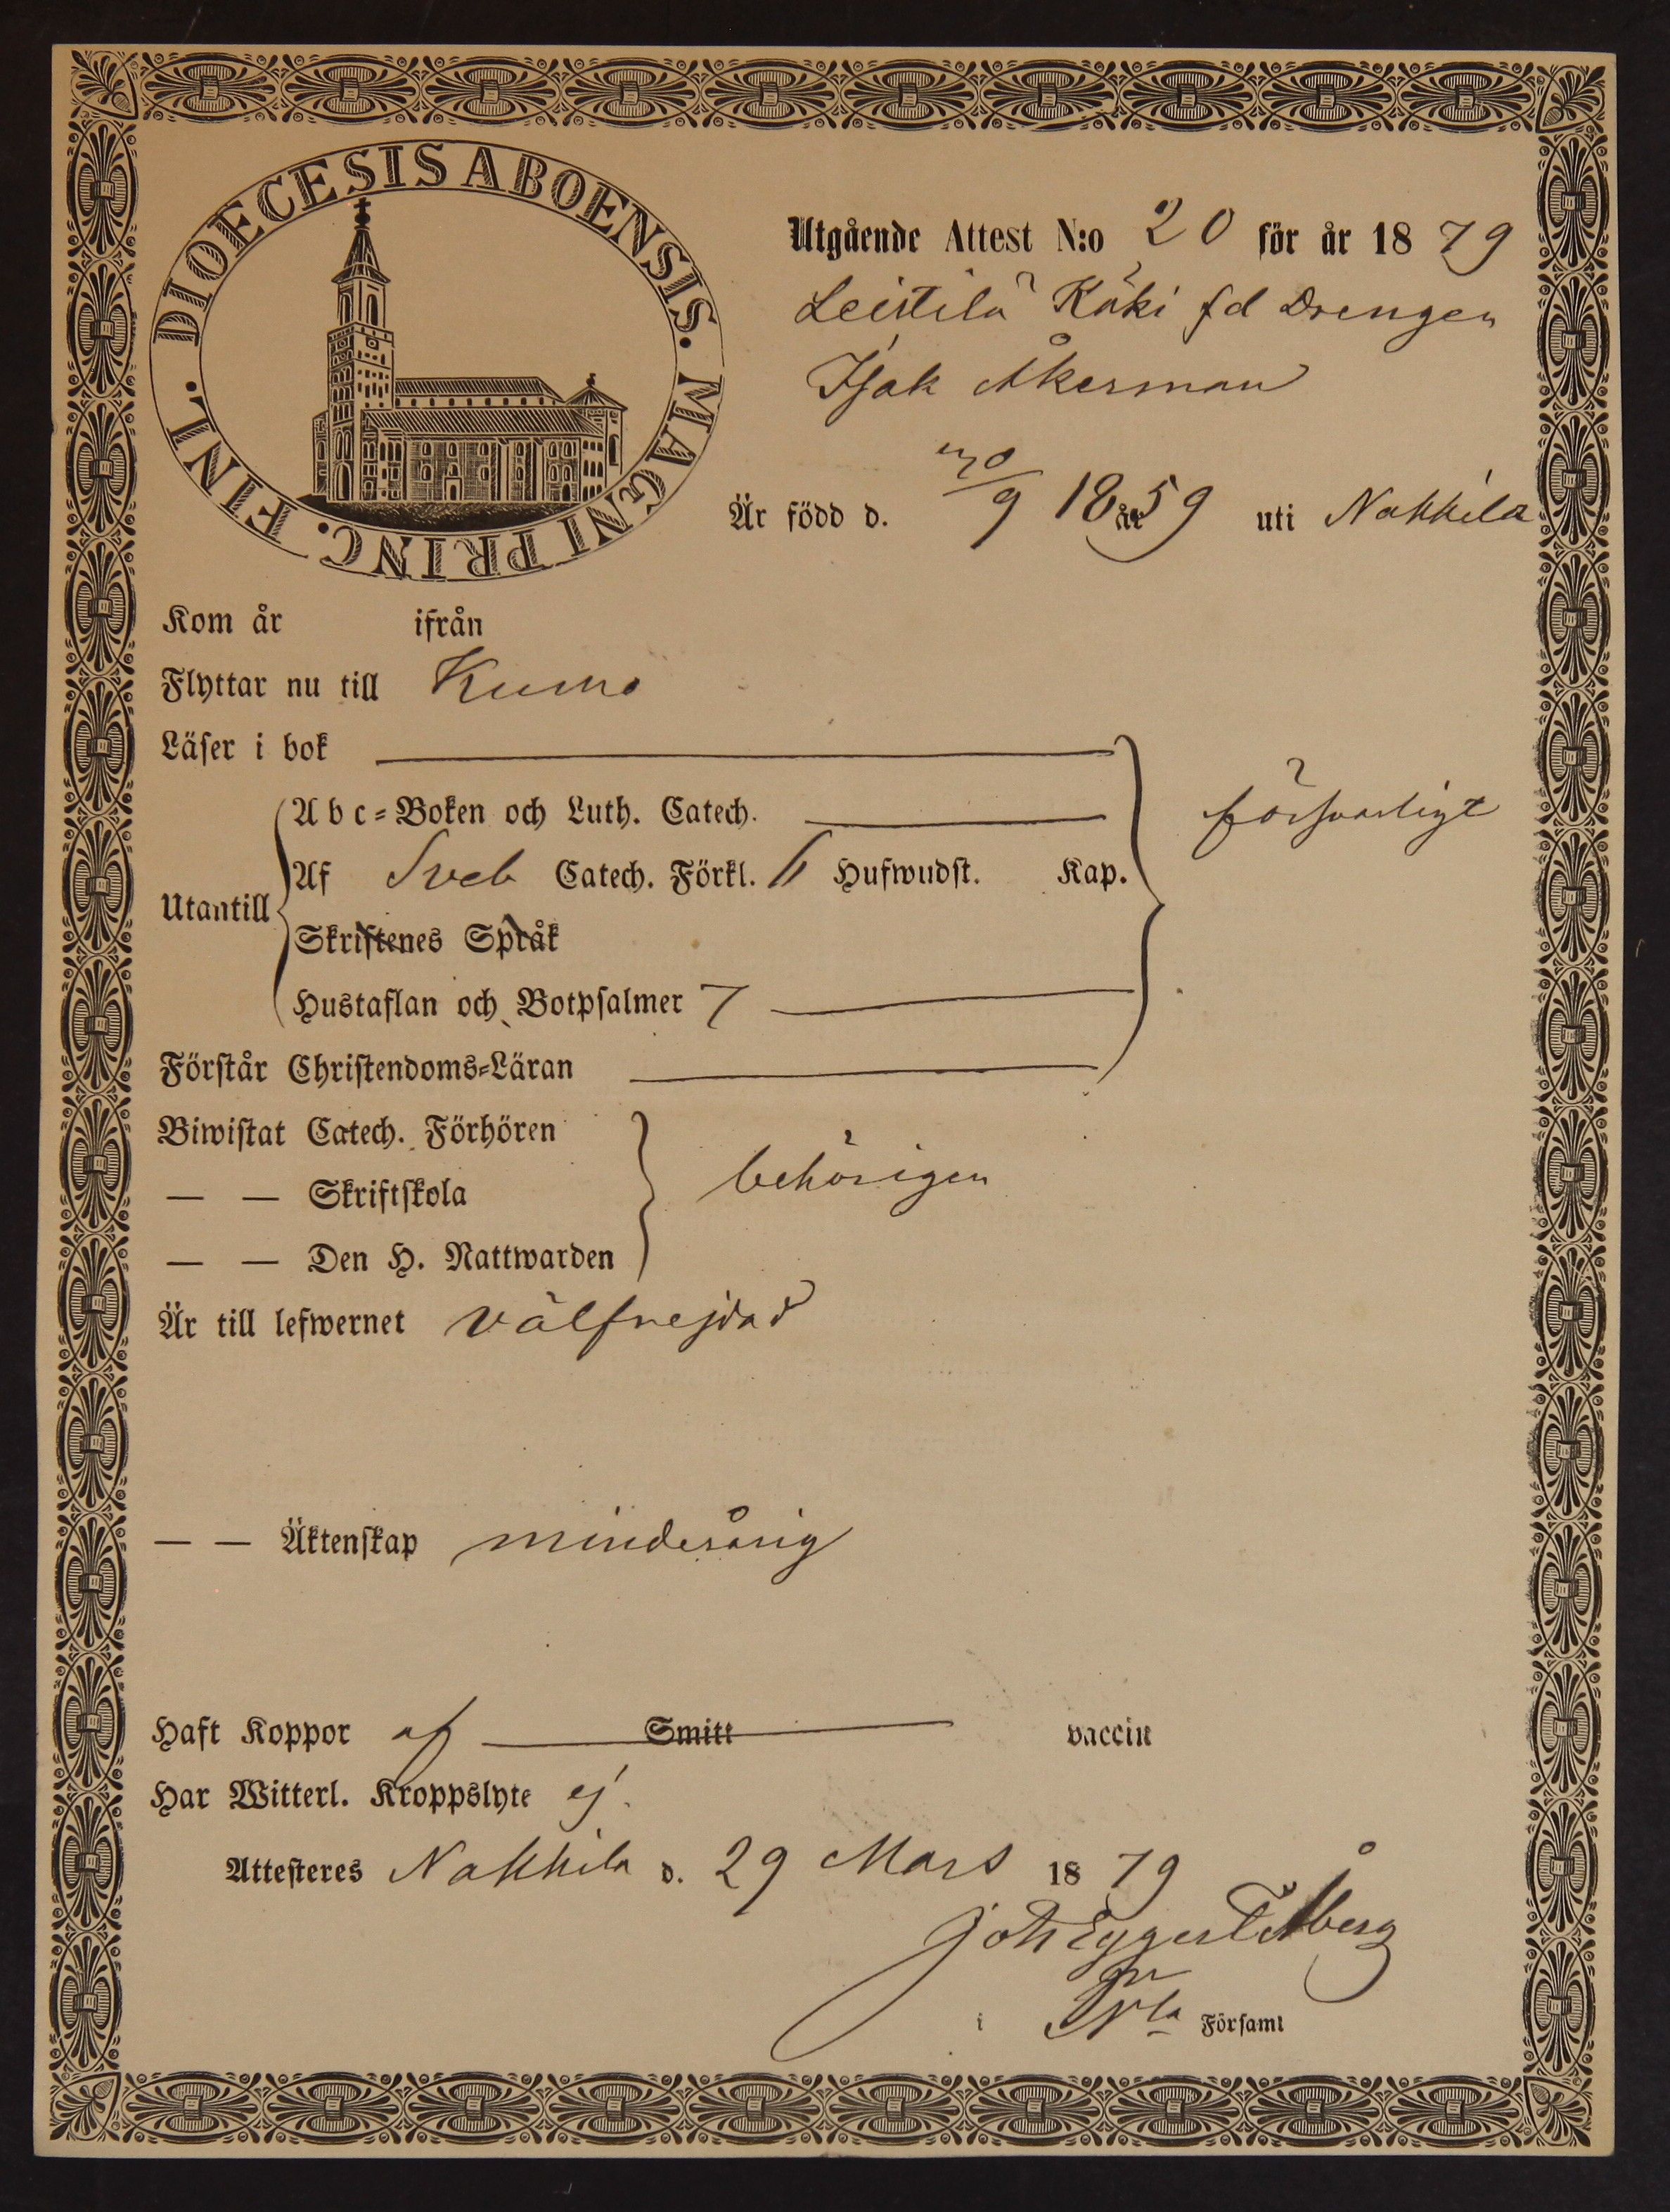 DIOECESIS ABOENSIS. MAGNI PRINC. FINL.
Utgående Attest N:o 20 för år 1879
Leistilä Käki fd Drengen
Isak Åkerman
Är född d. /9 1859 uti Nakkila
Kom år ifrån
Flyttar nu till Kumo
Läser i bok
Abc-Boken och Luth. Catech.
försvarligt
Utantill
Af Sveb Catech. Förkl. 6 Hufwudst. Kap.
Skriftenes Språk
Hustaflan och Botpsalmer 7
Förstår Christendoms-Läran
Biwistat Catech. Förhören
— — Skriftskola
behörigen
— — Den H. Nattwarden
Är till lefwernet välfrejdad
— — Äktenskap minderårig
Haft Koppor af Smitt vaccin
Har Witterl. Kroppslyte ej.
Attesteres Nakkila d. 29 Mars 1879
Joh Eggert Åberg
i N:la Församl